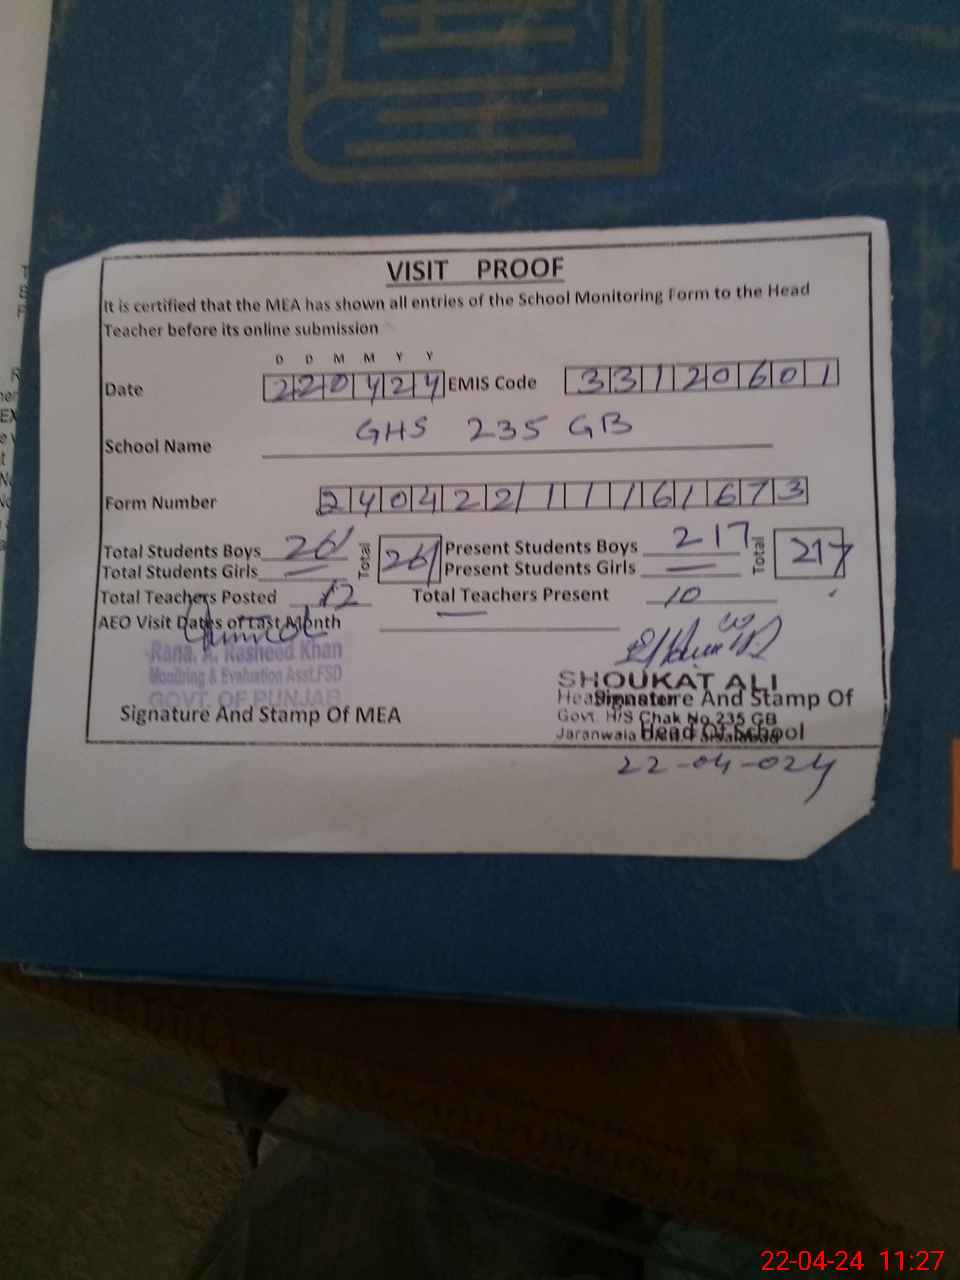 VISIT PROOF
It is certified that the MEA has shown all entries of the School Monitoring Form to the Head
Teacher before its online submission
D D M M Y Y
Date 220424 EMIS Code 33120601
School Name GHS 235 GB
Form Number
Total Students Boys 261 Total 261 Present Students Boys 217 Total 217
Total Students Girls — Present Students Girls —
Total Teachers Posted 12 Total Teachers Present 10
AEO Visit Dates of Last Month —
Rana. A. Rasheed Khan
Monitring & Evaluation Asst.FSD
GOVT. OF PUNJAB
Signature And Stamp Of MEA
SHOUKAT ALI
Headmaster
Signature And Stamp Of
Govt. H/S Chak No 235 GB
Head Of School
Jaranwala
22-04-024
22-04-24 11:27